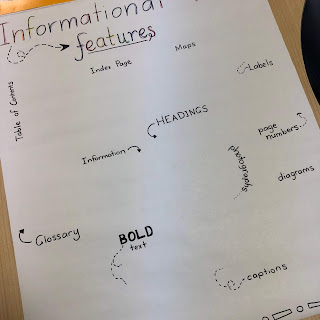 Informational
features
Index Page
Maps
Table of Contents
Labels
HEADINGS
page
numbers
Information
photographs
diagrams
Glossary
BOLD
text
captions